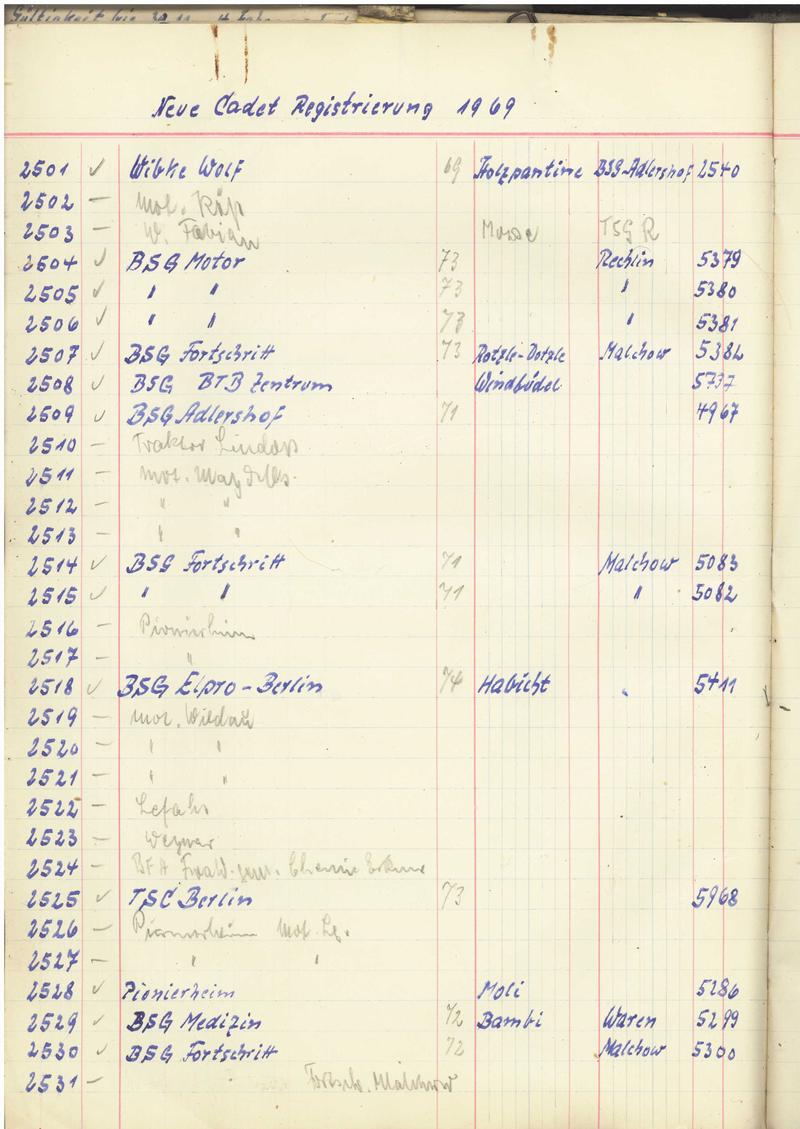 Gültigkeit bis
Neue Cadet Registrierung 1969
2501 ✓ Wibke Wolf 69 Holzpantine BSG-Adlershof 2540
2502 — Mot.
2503 — W. Fabian TSG R
2504 ✓ BSG Motor 73 Rechlin 5379
2505 ✓ " " 73 " 5380
2506 ✓ " " 73 " 5381
2507 ✓ BSG Fortschritt 73 Malchow 5382
2508 ✓ BSG BTB Zentrum Windbüdel 5737
2509 ✓ BSG Adlershof 71 4967
2510 — Traktor
2511 — mot.
2512 — " "
2513 — " "
2514 ✓ BSG Fortschritt 71 Malchow 5083
2515 ✓ " " 71 " 5082
2516 — Pionierheim
2517 — "
2518 ✓ BSG Elpro-Berlin 74 Habicht 5411
2519 — mot. Wildau
2520 — " "
2521 — " "
2522 —
2523 —
2524 — BFA
2525 ✓ TSC Berlin 73 5968
2526 — Pionierheim Mot.
2527 — " "
2528 ✓ Pionierheim Moli 5286
2529 ✓ BSG Medizin 72 Bambi Waren 5299
2530 ✓ BSG Fortschritt 72 Malchow 5300
2531 — Fortsch. Malchow